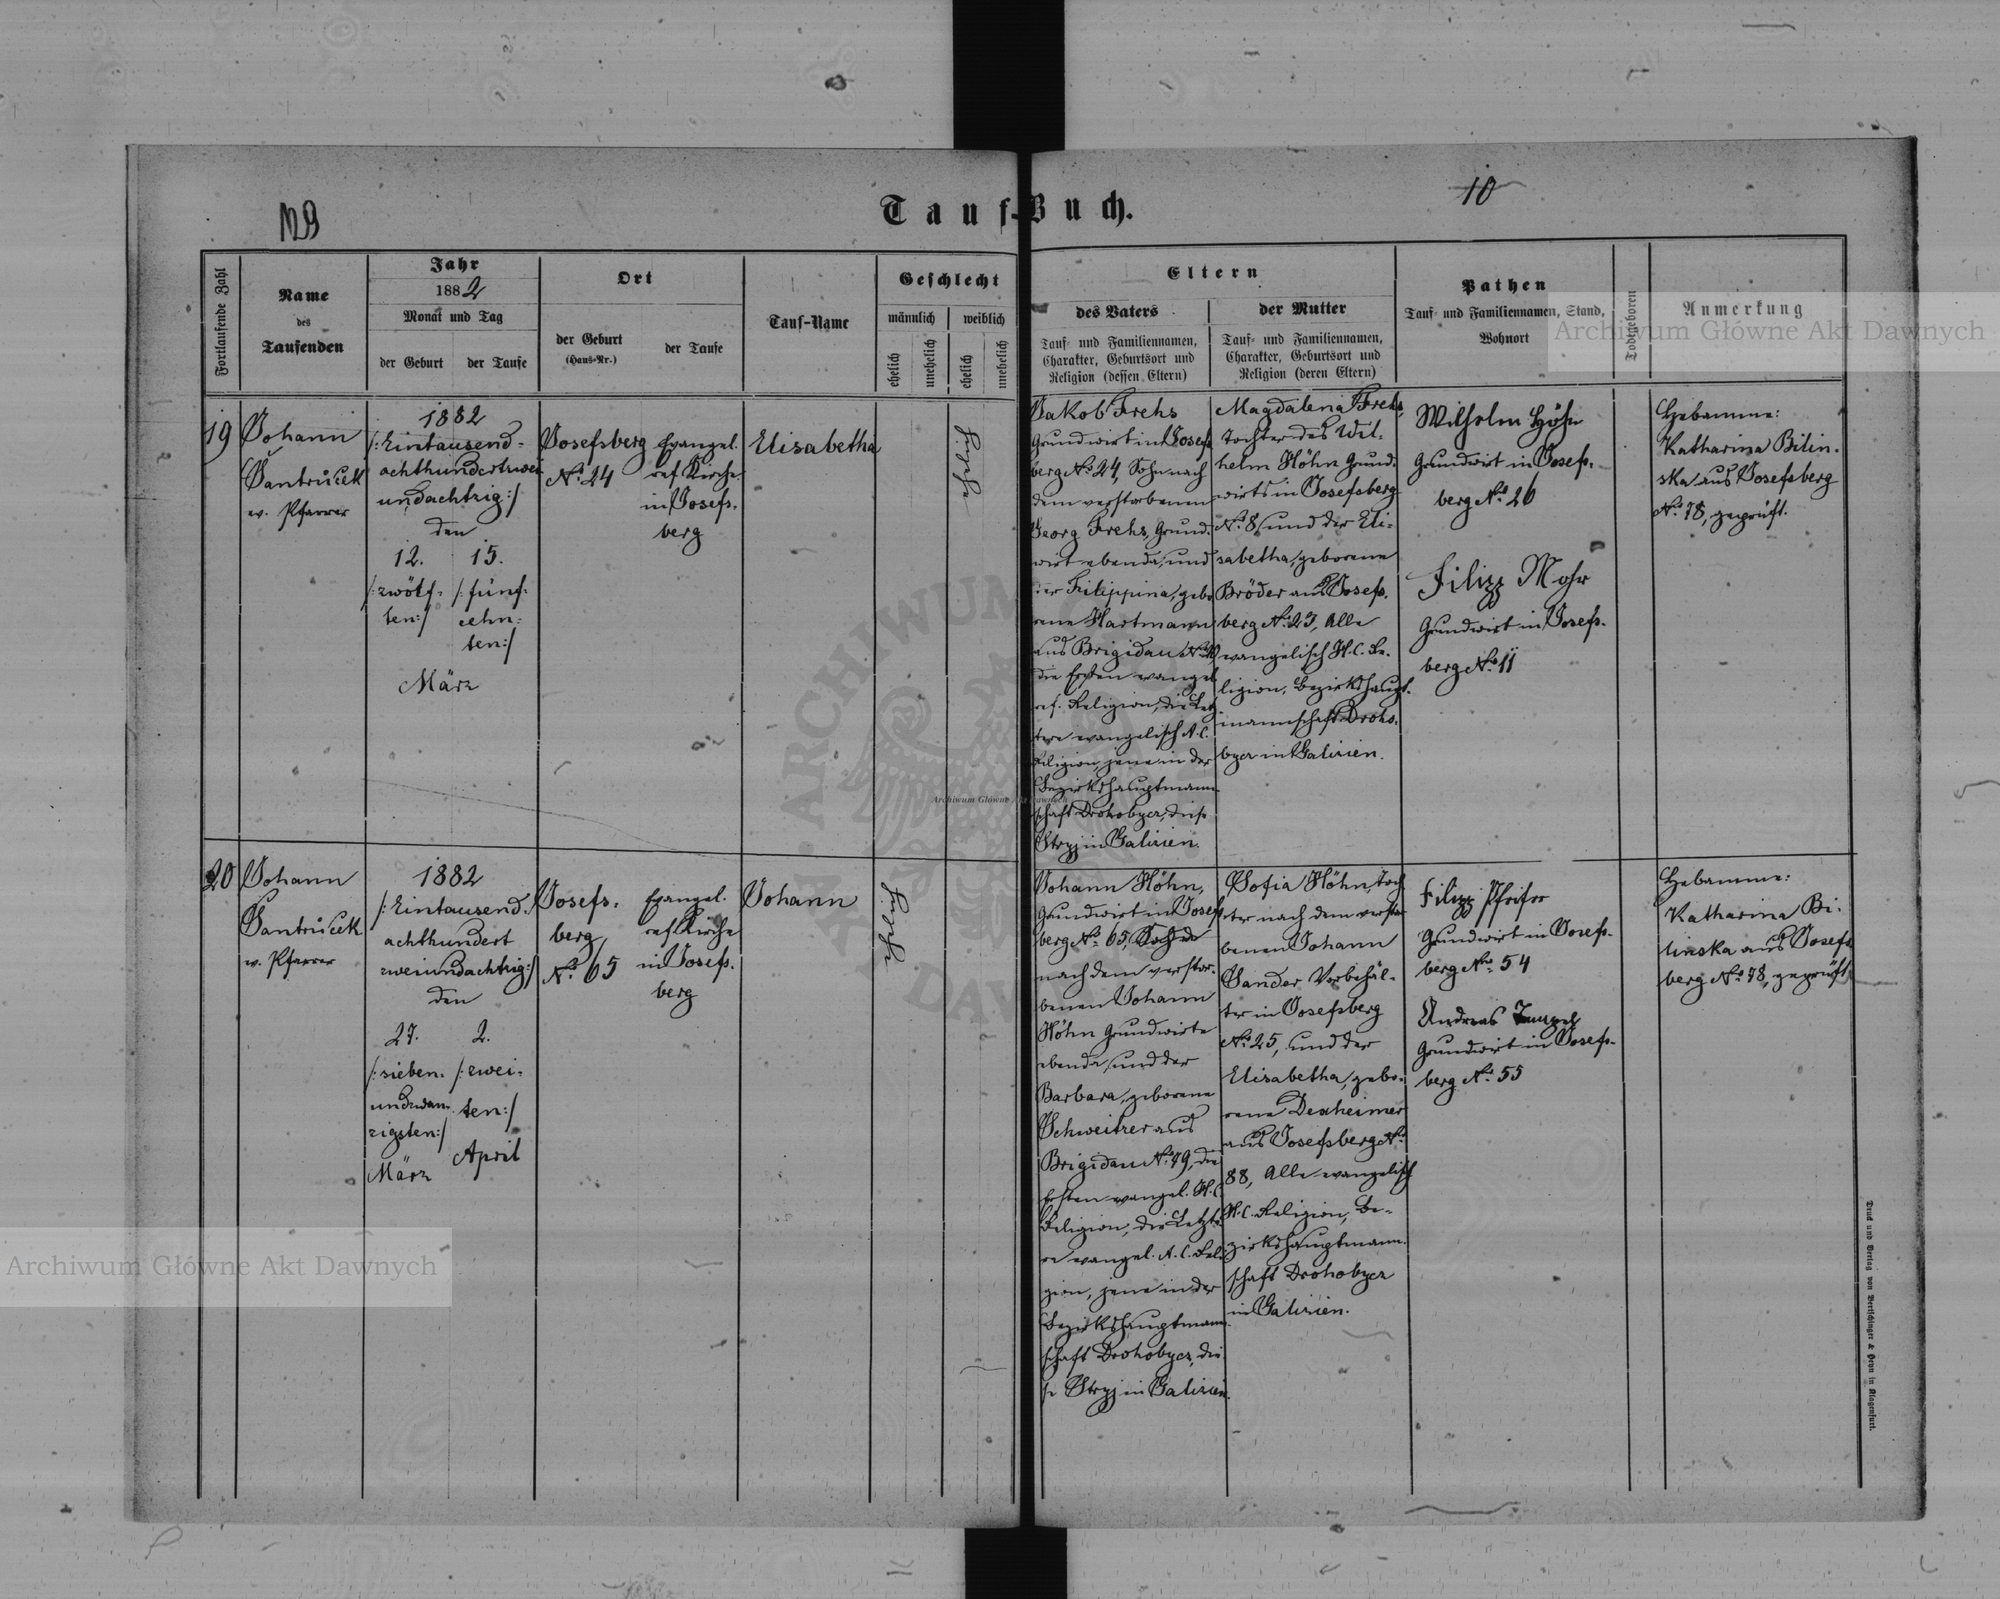 10
NB
Tauf-Buch.
Fortlaufende Zahl
Name
des
Taufenden
Jahr
1882
Monat und Tag
der Geburt
der Taufe
Ort
der Geburt
(Haus-Nr.)
der Taufe
Tauf-Name
Geschlecht
männlich
weiblich
ehelich
unehelich
ehelich
unehelich
Eltern
des Vaters
Tauf- und Familiennamen,
Charakter, Geburtsort und
Religion (dessen Eltern)
der Mutter
Tauf- und Familiennamen,
Charakter, Geburtsort und
Religion (deren Eltern)
Pathen
Tauf- und Familiennamen, Stand,
Wohnort
Todtgeboren
Anmerkung
Archiwum Główne Akt Dawnych
19
Johann
Jantrucek
ev. Pfarrer
1882
/:Eintausend-
achthundertzwei
undachtzig:/
den
12. 15.
/:zwölf-
ten:/
/:fünf-
zehn-
ten:/
März
Josefsberg
No. 24
Evangel.
ref. Kirche
in Josefs-
berg
Elisabetha
Jakob Frehs
Grundwirt in Josefs
berg No. 24, Sohn nach
dem verstorbenen
Georg Frehs, Grund-
wirt ebenda, und
der Filippina, gebo
rene Hartmann
aus Brigidau
die Ersten evangel
ref. Religion, die Letz
tere evangelisch A.C.
Religion, jene in der
Bezirkshauptmann
schaft Drohobycz, diese
Stryj in Galizien.
Magdalena Frehs,
Tochter des Wil-
helm Höhn Grund-
wirts in Josefsberg
No. 8, und der Eli-
sabetha, geborene
Bröder aus Josefs-
berg No. 23, Alle
evangelisch H.C. Re-
ligion, Bezirkshaupt-
mannschaft Droho-
bycz in Galizien.
Wilhelm Höhn
Grundwirt in Josefs-
berg No. 26
Filipp Mohr
Grundwirt in Josefs-
berg No. 11
Hebamme:
Katharina Bilin-
ska aus Josefsberg
No. 78, geprüft.
20
Johann
Jantrucek
ev. Pfarrer
1882
/:Eintausend-
achthundert
zweiundachtzig:/
den
27. 2.
/:sieben-
undzwan-
zigsten:/
März
/:zwei-
ten:/
April
Josefs-
berg
No. 65
Evangel.
ref. Kirche
in Josefs-
berg
Johann
Johann Höhn,
Grundwirt in Josefs
berg No. 65,
nach dem verstor-
benen Johann
Höhn Grundwirte
ebenda, und der
Barbara, geborene
Schweitzer aus
Brigidau No. 79, die
Ersten evangel. H.C.
Religion, die Letzte
re evangel. A.C. Reli
gion, jene in der
Bezirkshauptmann-
schaft Drohobycz, die-
se Stryj in Galizien.
Sofia Höhn, Toch
ter nach dem verstor
benen Johann
Sander Vorbehäl-
ter in Josefsberg
No. 25, und der
Elisabetha, gebo-
rene Dexheimer
aus Josefsberg No.
88, Alle evangelisch
H.C. Religion, Be-
zirkshauptmann-
schaft Drohobycz
in Galizien.
Filipp Pfeifer
Grundwirt in Josefs-
berg No. 54
Andreas
Grundwirt in Josefs-
berg No. 55
Hebamme:
Katharina Bi-
linska aus Josefs
berg No. 78, geprüft
Archiwum Główne Akt Dawnych
Archiwum Główne Akt Dawnych
Druck und Verlag von Bertschinger & Heyn in Klagenfurt.